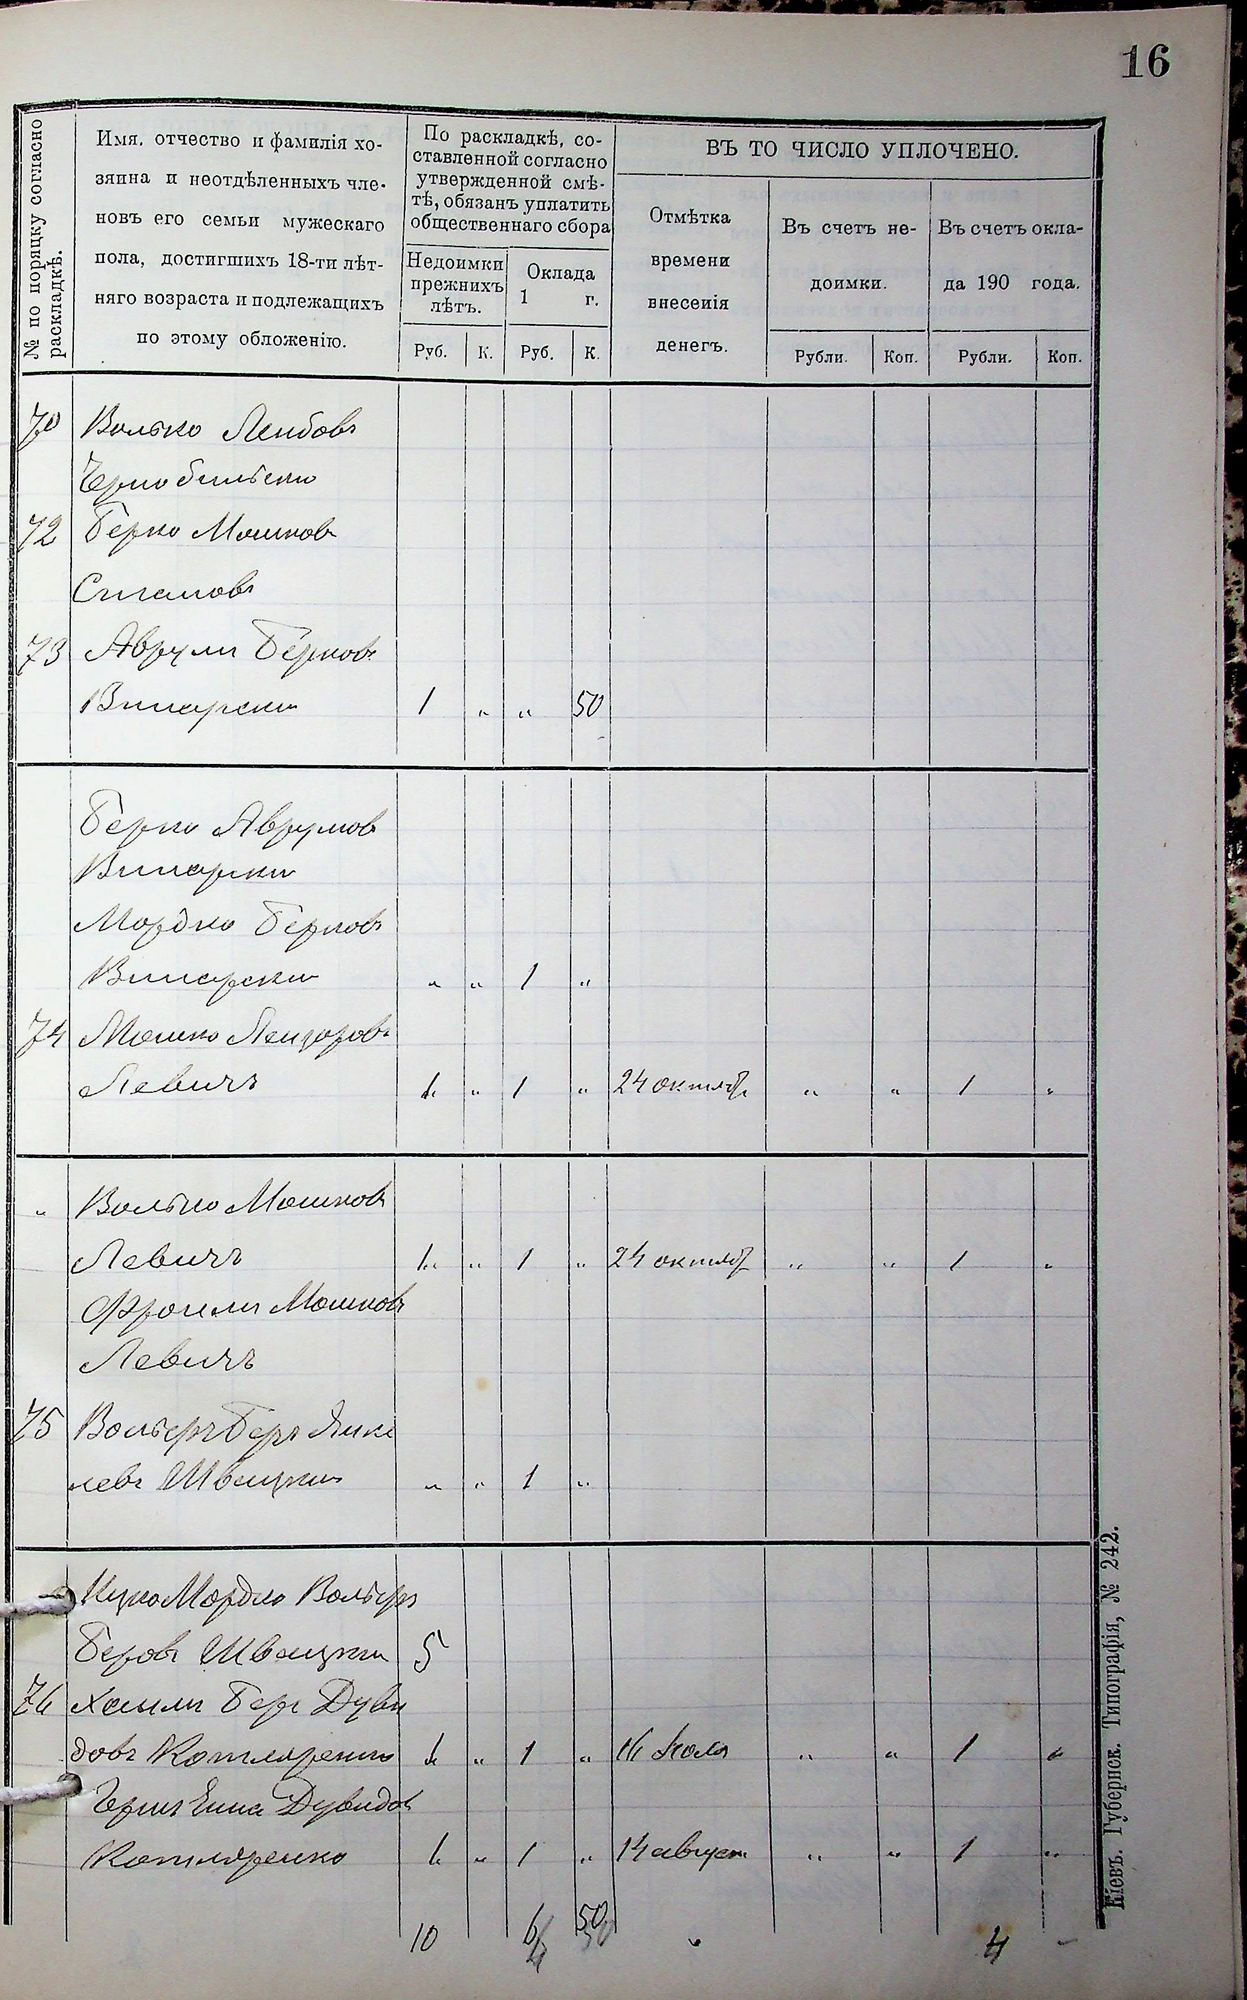 16
№ по поряцку согласно
раскладкѣ.
Имя, отчество и фамилія хо-
зяина и неотдѣленныхъ чле-
новъ его семьи мужескаго
пола, достигшихъ 18-ти лѣт-
няго возраста и подлежащихъ
по этому обложенію.
По раскладкѣ, со-
ставленной согласно
утвержденной смѣ-
тѣ, обязанъ уплатить
общественнаго сбора
Недоимки
прежнихъ
лѣтъ.
Оклада
1 г.
Руб. К. Руб. К.
ВЪ ТО ЧИСЛО УПЛОЧЕНО.
Отмѣтка
времени
внесенія
денегъ.
Въ счетъ не-
доимки.
Рубли. Коп.
Въ счетъ окла-
да 190 года.
Рубли. Коп.
70 Волько Лейбовъ
Чернобильски
72 Берко Мошковъ
73 Аврумъ Берковъ
Винарски 1 „ „ 50
Берко Аврумовъ
Винарски
Мордко Берковъ
Винарски „ „ 1 „
74 Мошко Лейзоровъ
Левичъ 1 „ 1 „ 24 октяб „ „ 1 „
„ Волько Мошковъ
Левичъ 1 „ 1 „ 24 октяб „ „ 1 „
Фроимъ Мошковъ
Левичъ
75 Вольфъ Беръ Янке
левъ Швецкий „ „ 1 „
Ицко Мордко Вольфъ
Беровъ Швецкий 5
76 Хаимъ Беръ Дуви
довъ Котляренко 1 „ 1 „ „ „ 1 „
Дувидов
Котляренко 1 „ 1 „ 14 август „ „ 1 „
10 6 50 4
Кіевъ. Губернск. Типографія, № 242.